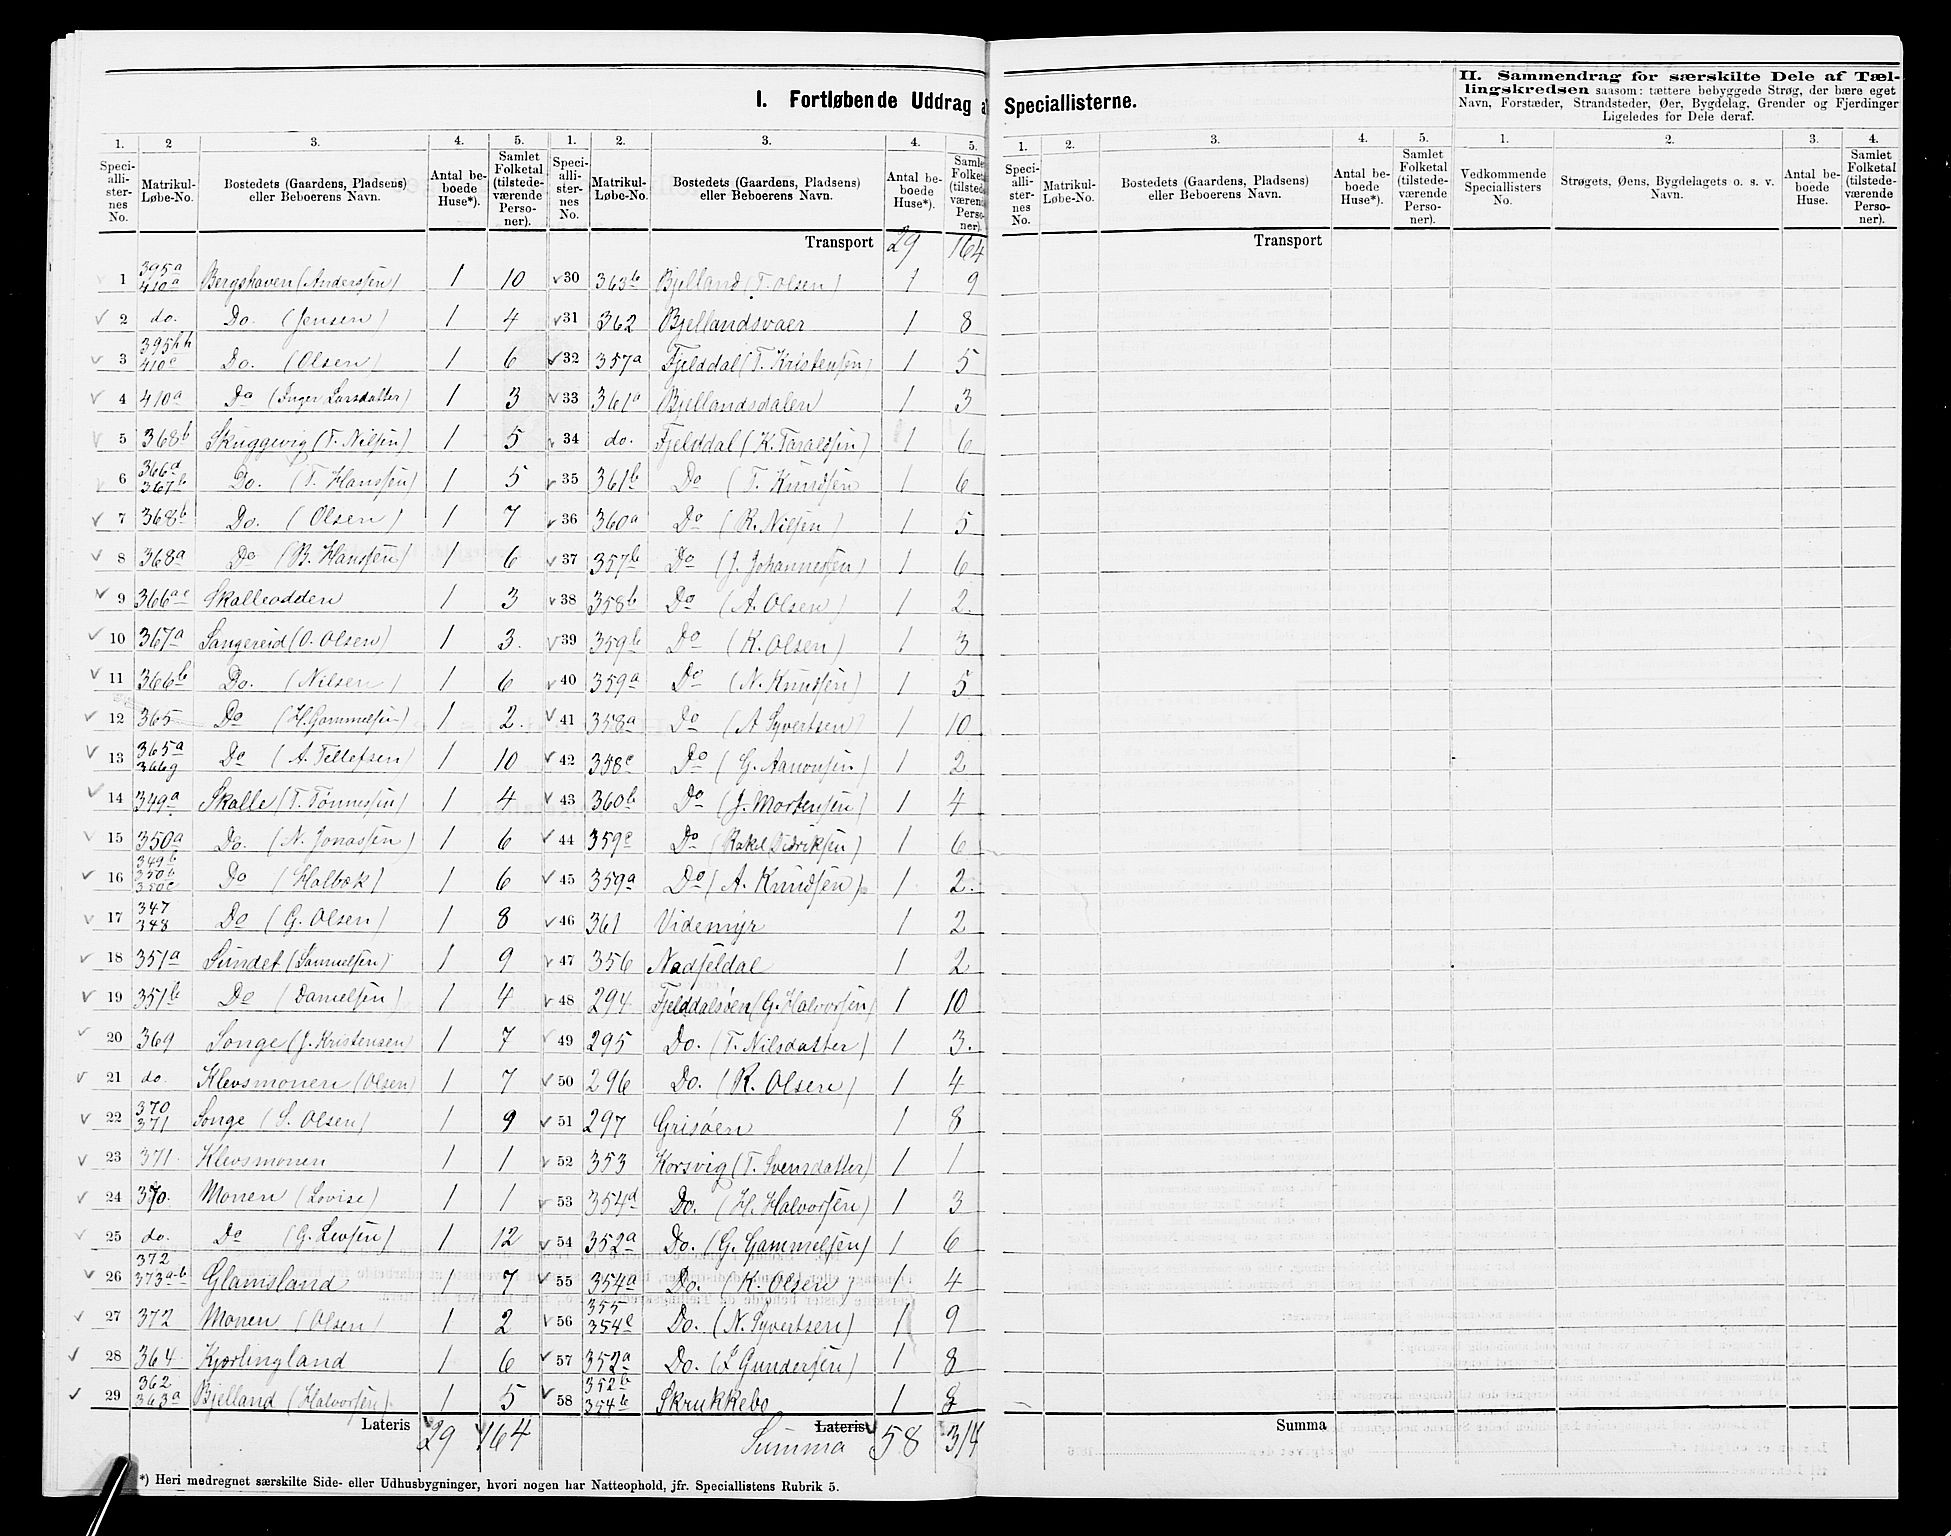 I. Fortløbende Uddrag a Speciallisterne.
II. Sammendrag for særskilte Dele af Tæl-
lingskredsen saasom: tættere bebyggede Strøg, der bære eget
Navn, Forstæder, Strandsteder, Øer, Bygdelag, Grender og Fjerdinger
Ligeledes for Dele deraf.
1. 2 3. 4. 5.
Speciallisternes No. Matrikul-Løbe-No. Bostedets (Gaardens, Pladsens) eller Beboerens Navn. Antal beboede Huse*). Samlet Folketal (tilstedeværende Personer).
1 395a 410a Bergshaven (Anderssen) 1 10
2 do. Do. (Jensen) 1 4
3 395hh 410c Do. (Olsen) 1 6
4 410a Do (Inger Larsdatter) 1 3
5 368b Skuggevig (T. Nilsen) 1 5
6 366d 367b Do. (T. Hanssen) 1 5
7 368b Do. (Olsen) 1 7
8 368a Do (B. Hanssen) 1 6
9 366ae Skalleodden 1 3
10 367a Sangereid (O. Olsen) 1 3.
11 366b Do. (Nilsen) 1 6
12 365 Do (H. Gammelsen) 1 2.
13 365a 366g Do (A. Tellefsen) 1 10
14 349a Skalle (T. Tønnessen) 1 4
15 350a Do. (N. Jonassen) 1 6
16 349b 350b 350c Do (Holbæk) 1 6
17 347 348 Do (G. Olsen) 1 8
18 351a Sundet (Samuelsen) 1 9
19 351b Do (Danielsen) 1 4
20 369 Songe (J. Kristensen) 1 7
21 do. Klevsmonen (Olsen) 1 7
22 370 371 Songe (S. Olsen) 1 9
23 371. Klevsmonen 1 1
24 370. Monen (Lovise) 1 1
25 do. Do (G. Levsen) 1 12
26 372 373a-b Glamsland 1 7
27 372 Monen (Olsen) 1 2
28 364 Kjørlingland 1 6
29 362 363a Bjelland (Halvorsen). 1 5
Lateris 29 164
1. 2. 3. 4. 5.
Speciallisternes No. Matrikul-Løbe-No. Bostedets (Gaardens, Pladsens) eller Beboerens Navn. Antal beboede Huse*).
Transport 29 164
30 363b Bjelland (T. Olsen) 1 9
31 362 Bjellandsvaer 1 8
32 357a Fjelddal (T. Kristensen) 1 5
33 361a Bjellandsdalen 1 3
34 do. Fjelddal (K. Taraldsen) 1 6
35 361b Do (T. Knudsen 1 6
36 360a Do (R. Nilsen) 1 5
37 357b Do (J. Johannessen) 1 6
38 358b Do (A. Olsen) 1 2.
39 359b Do (K. Olsen) 1 3
40 359a Do (N. Knudsen) 1 5
41 358a Do (A Syvertsen) 1 10
42 358c Do (G. Aanonsen) 1 2
43 360b Do (J. Mortensen) 1 4
44 359c Do (Rakel Didriksen) 1 6
45 359a Do (A. Knudsen). 1 2.
46 361 Videmyr 1 2
47 356 Nadfeldal 1 2
48 294 Fjelddalsøen (G. Halvorsen) 1 10
49 295 Do. (T. Nilsdatter) 1 3.
50 296 Do. (R. Olsen) 1 4
51 297 Grisøen 1 8
52 353 Korsvig (T. Svensdatter) 1 1
53 354d Do. (H. Halvorsen) 1 3
54 352a Do. (G. Gammelsen) 1 6
55 354a Do. (K. Olsen) 1 4
56 355 354c Do. (N. Syvertsen) 1 9
57 352a Do. (L Gundersen) 1 8
58 352b 354b Skrukkebo 1 8
Lateris Summa 58 314
*) Heri medregnet særskilte Side- eller Udhusbygninger, hvori nogen har Natteophold, jfr. Speciallistens Rubrik 5.
1. 2. 3. 4. 5.
Speciallisternes No. Matrikul-Løbe-No. Bostedets (Gaardens, Pladsens) eller Beboerens Navn. Antal beboede Huse*). Samlet Folketal (tilstedeværende Personer).
Transport
Summa
1. 2. 3. 4.
Vedkommende Speciallisters No. Strøgets, Øens, Bygdelagets o. s. v. Navn. Antal beboede Huse. Samlet Folketal (tilstedeværende Personer).